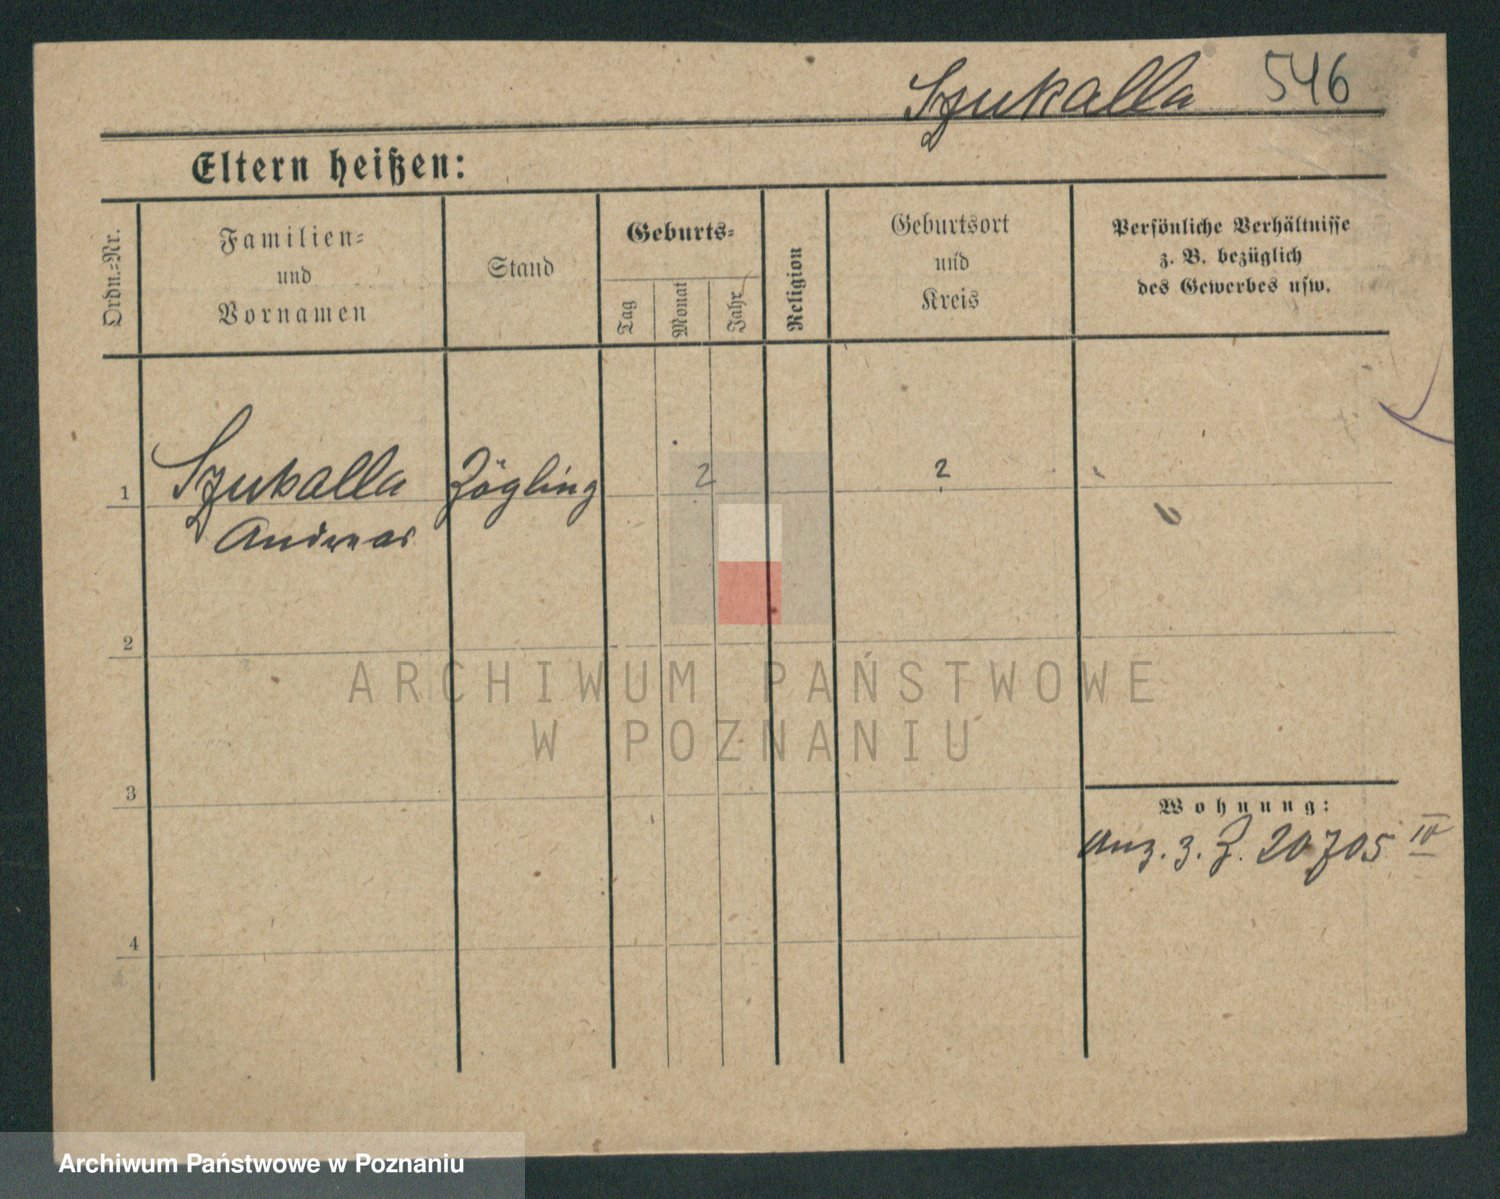 Szukalla 546
Eltern heißen:
Ordn.=Nr.
Familien=
und
Vornamen
Stand
Geburts=
Tag
Monat
Jahr
Religion
Geburtsort
und
Kreis
Persönliche Verhältnisse
z. B. bezüglich
des Gewerbes usw.
1 Szukalla Zögling 2 2
Andreas
2
3
4
Wohnung:
Anz. z. Z. 20705 IV
ARCHIWUM PAŃSTWOWE
W POZNANIU
Archiwum Państwowe w Poznaniu